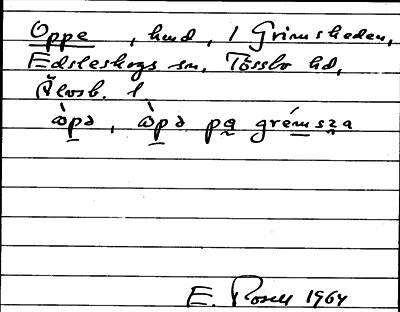 Oppe, hmd, i Grimsheden,
Edsleskogs sn, Tössbo hd,
Älvsb. l
ὼpə, ὼpə pa grémsza
E. Rosell 1964